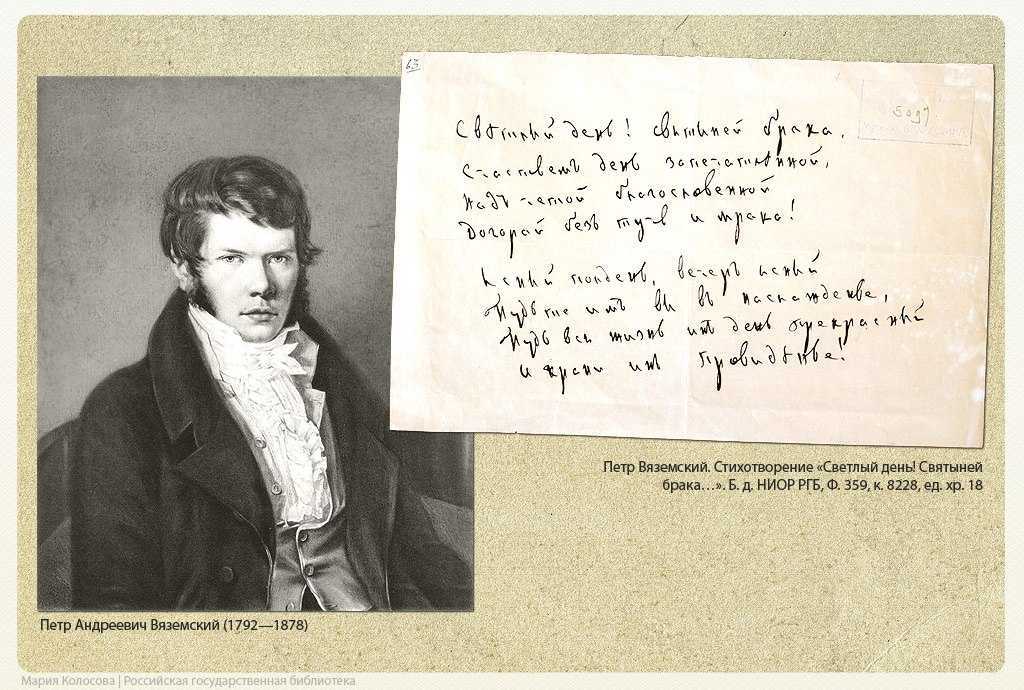 63
5097
Свѣтлый день! святыней брака,
Счастьемъ день запечатлѣнной,
Надъ четой благословенной
Догорай безъ тучь и мрака!
Ясный полдень, вечеръ ясный
Будь же имъ въ наслажденье,
Будь вся жизнь имъ день прекрасный
и храни ихъ Провидѣнье!
Петр Вяземский. Стихотворение «Светлый день! Святыней
брака…». Б. д. НИОР РГБ, Ф. 359, к. 8228, ед. хр. 18
Петр Андреевич Вяземский (1792—1878)
Мария Колосова | Российская государственная библиотека